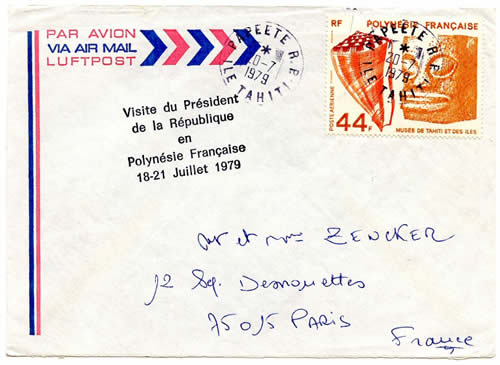 PAR AVION
VIA AIR MAIL
LUFTPOST
PAPEETE R.P.
20-7
1979
ILE TAHITI
RF POLYNÉSIE FRANÇAISE
PAPEETE R.P.
20-7
1979
ILE TAHITI
POSTE AÉRIENNE
44F
MUSÉE DE TAHITI ET DES ILES
Visite du Président
de la République
en
Polynésie Française
18-21 Juillet 1979
et ZENCKER
Sq. Desnouettes
75015 PARIS
France